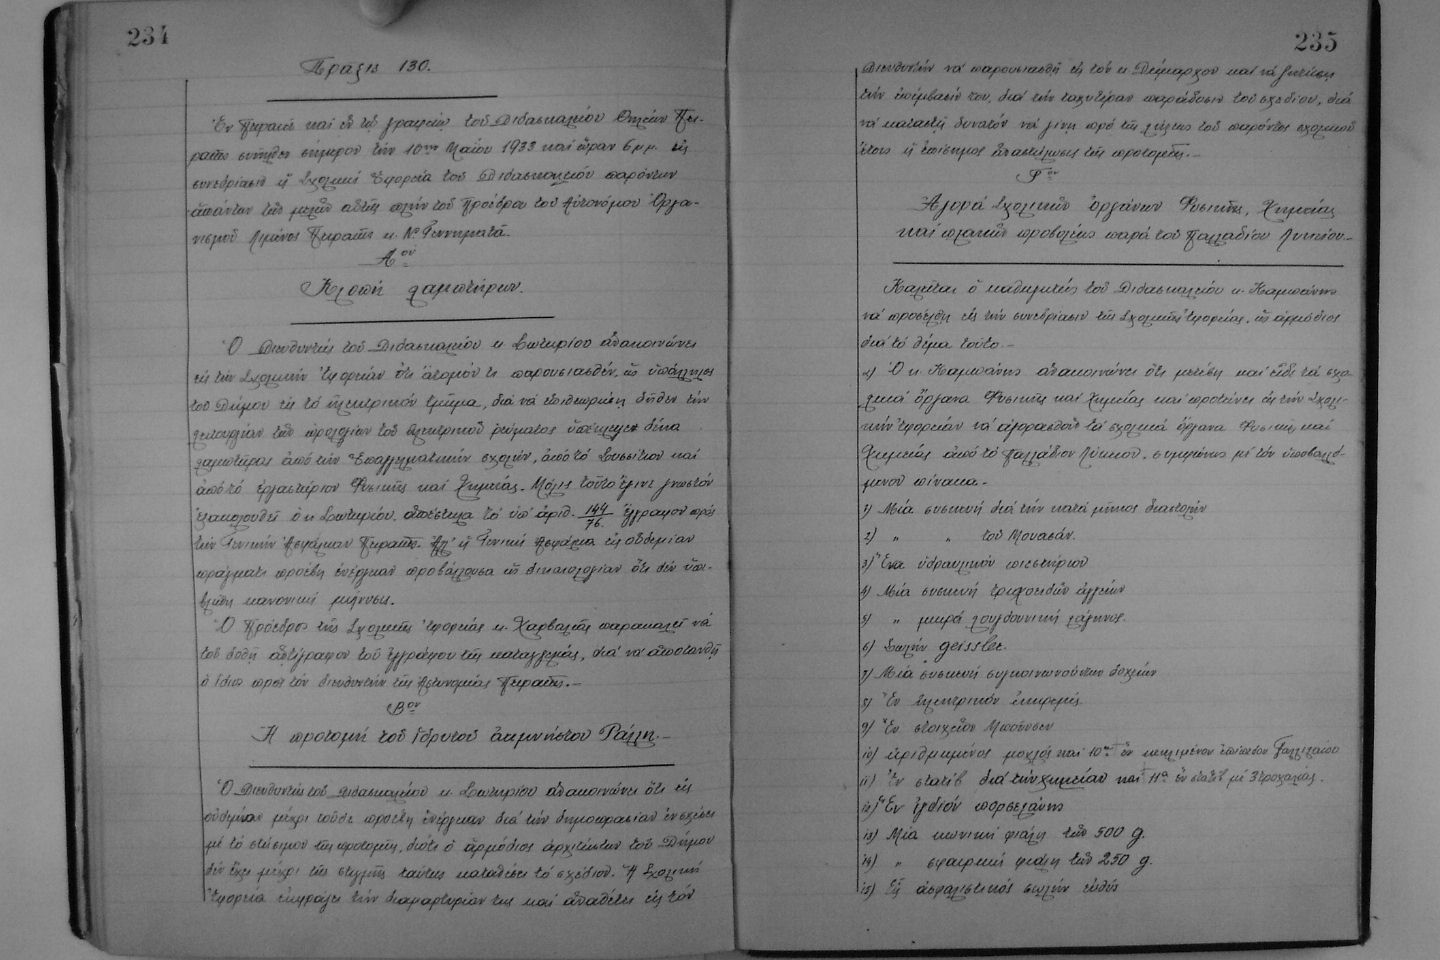 234
Πράξις 130.
Ἐν Πειραιεῖ καὶ ἐν τῷ γραφείῳ τοῦ Διδασκαλείου Θηλέων Πει-
ραιῶς συνῆλθεν σήμερον τὴν 10ην Μαΐου 1933 καὶ ὥραν 6 μ.μ. εἰς
συνεδρίασιν ἡ Σχολικὴ Ἐφορεία τοῦ Διδασκαλείου παρόντων
ἁπάντων τῶν μελῶν αὐτῆς πλὴν τοῦ Προέδρου τοῦ Αὐτονόμου Ὀργα-
νισμοῦ Λιμένος Πειραιῶς κ. Ν. Γεννηματᾶ.
Α ον
Κλοπὴ λαμπτήρων.
Ὁ Διευθυντὴς τοῦ Διδασκαλείου κ. Σωτηρίου ἀνακοινώνει
εἰς τὴν Σχολικὴν Ἐφορείαν ὅτι ἄτομόν τι παρουσιασθέν, ὡς ὑπάλληλος
τοῦ Δήμου εἰς τὸ ἠλεκτρικὸν τμῆμα, διὰ νὰ ἐπιθεωρήσῃ δῆθεν τὴν
λειτουργίαν τῶν ὡρολογίων τοῦ ἠλεκτρικοῦ ρεύματος ὑπέκλεψε δέκα
λαμπτῆρας ἀπὸ τὴν Ἐπαγγελματικὴν σχολήν, ἀπὸ τὸ Συσσίτιον καὶ
ἀπὸ τὸ ἐργαστήριον Φυσικῆς καὶ Χημείας. Μόλις τοῦτο ἔγινε γνωστὸν
ἐξακολουθεῖ ὁ κ. Σωτηρίου ἀπέστειλα τὸ ὑπ' ἀριθ. 144/76 ἔγγραφον πρὸς
τὴν Γενικὴν Ἀσφάλειαν Πειραιῶς. Ἀλλ' ἡ Γενικὴ Ἀσφάλεια εἰς οὐδεμίαν
πράγματι προέβη ἐνέργειαν προβάλλουσα ὡς δικαιολογίαν ὅτι δὲν ὑπε-
βλήθη κανονικὴ μήνυσις.
Ὁ Πρόεδρος τῆς Σχολικῆς Ἐφορείας κ. Χαρβαλιᾶς παρακαλεῖ νὰ
τοῦ δοθῇ ἀντίγραφον τοῦ ἐγγράφου τῆς καταγγελίας, διὰ νὰ ἀποτανθῇ
ὁ ἴδιος πρὸς τὸν διευθυντὴν τῆς Ἀστυνομίας Πειραιῶς.—
Β ον
Ἡ προτομὴ τοῦ Ἱδρυτοῦ ἀειμνήστου Ράλλη.—
Ὁ Διευθυντὴς τοῦ Διδασκαλείου κ. Σωτηρίου ἀνακοινώνει ὅτι εἰς
οὐδεμίαν μέχρι τοῦδε προέβη ἐνέργειαν διὰ τὴν δημοπρασίαν ἐν σχέσει
μὲ τὸ στήσιμον τῆς προτομῆς, διότι ὁ ἁρμόδιος ἀρχιτέκτων τοῦ Δήμου
δὲν ἔχει μέχρι τῆς στιγμῆς ταύτης καταθέσει τὸ σχέδιον. Ἡ Σχολικὴ
Ἐφορεία ἐκφράζει τὴν διαμαρτυρίαν της καὶ ἀναθέτει εἰς τὸν
235
Διευθυντὴν νὰ παρουσιασθῇ εἰς τὸν κ. Δήμαρχον καὶ νὰ ζητήσῃ
τὴν ἐπέμβασίν του, διὰ τὴν ταχυτέραν παράδοσιν τοῦ σχεδίου, διὰ
νὰ καταστῇ δυνατὸν νὰ γίνῃ πρὸ τῆς λήξεως τοῦ παρόντος σχολικοῦ
ἔτους ἡ ἐπίσημος ἀναστήλωσις τῆς προτομῆς.—
Γ ον
Ἀγορὰ Σχολικῶν ὀργάνων Φυσικῆς, Χημείας
καὶ πλακῶν προβολῆς παρὰ τοῦ Παλλαδίου Λυκείου.—
Καλεῖται ὁ καθηγητὴς τοῦ Διδασκαλείου κ. Καμπάνης
νὰ προσέλθῃ εἰς τὴν συνεδρίασιν τῆς Σχολικῆς Ἐφορείας, ὡς ἁρμόδιος
διὰ τὸ θέμα τοῦτο.—
α) Ὁ κ. Καμπάνης ἀνακοινώνει ὅτι μετέβη καὶ εἶδε τὰ σχο-
λικὰ ὄργανα Φυσικῆς καὶ Χημείας καὶ προτείνει εἰς τὴν Σχολι-
κὴν Ἐφορείαν νὰ ἀγορασθοῦν τὰ σχολικὰ ὄργανα Φυσικῆς καὶ
Χημείας ἀπὸ τὸ Παλλάδιον Λύκειον, συμφώνως μὲ τὸν ὑποβαλλό-
μενον πίνακα.—
1) Μία συσκευὴ διὰ τὴν κατὰ μῆκος διαστολὴν
2) „ „ τοῦ Μουασάν.
3) Ἕνα ὑδραυλικὸν πιεστήριον
4) Μία συσκευὴ τριχοειδῶν ἀγγείων
5) „ μικρὰ λουγδουνικὴ λάγηνος.
6) Σωλὴν geissler.
7) Μία συσκευὴ συγκοινωνούντων δοχείων
8) Ἓν ἠλεκτρικὸν ἐκκρεμές
9) Ἓν στοιχεῖον Μποῦνσεν
10) ἀριθμημένος μοχλὸς καὶ 10α ἓν κεκλιμένον ἐπίπεδον Γαλλιλαίου
11) Ἓν στατὶβ διὰ τὴν χημείαν καὶ 11α ἓν στατὶβ μὲ 3 τροχαλίας.
12) Ἓν ἰγδίον πορσελάνης
13) Μία κωνικὴ φιάλη τῶν 500 g.
14) „ σφαιρικὴ φιάλη τῶν 250 g.
15) Εἷς ἀσφαλιστικὸς σωλὴν εὐθύς